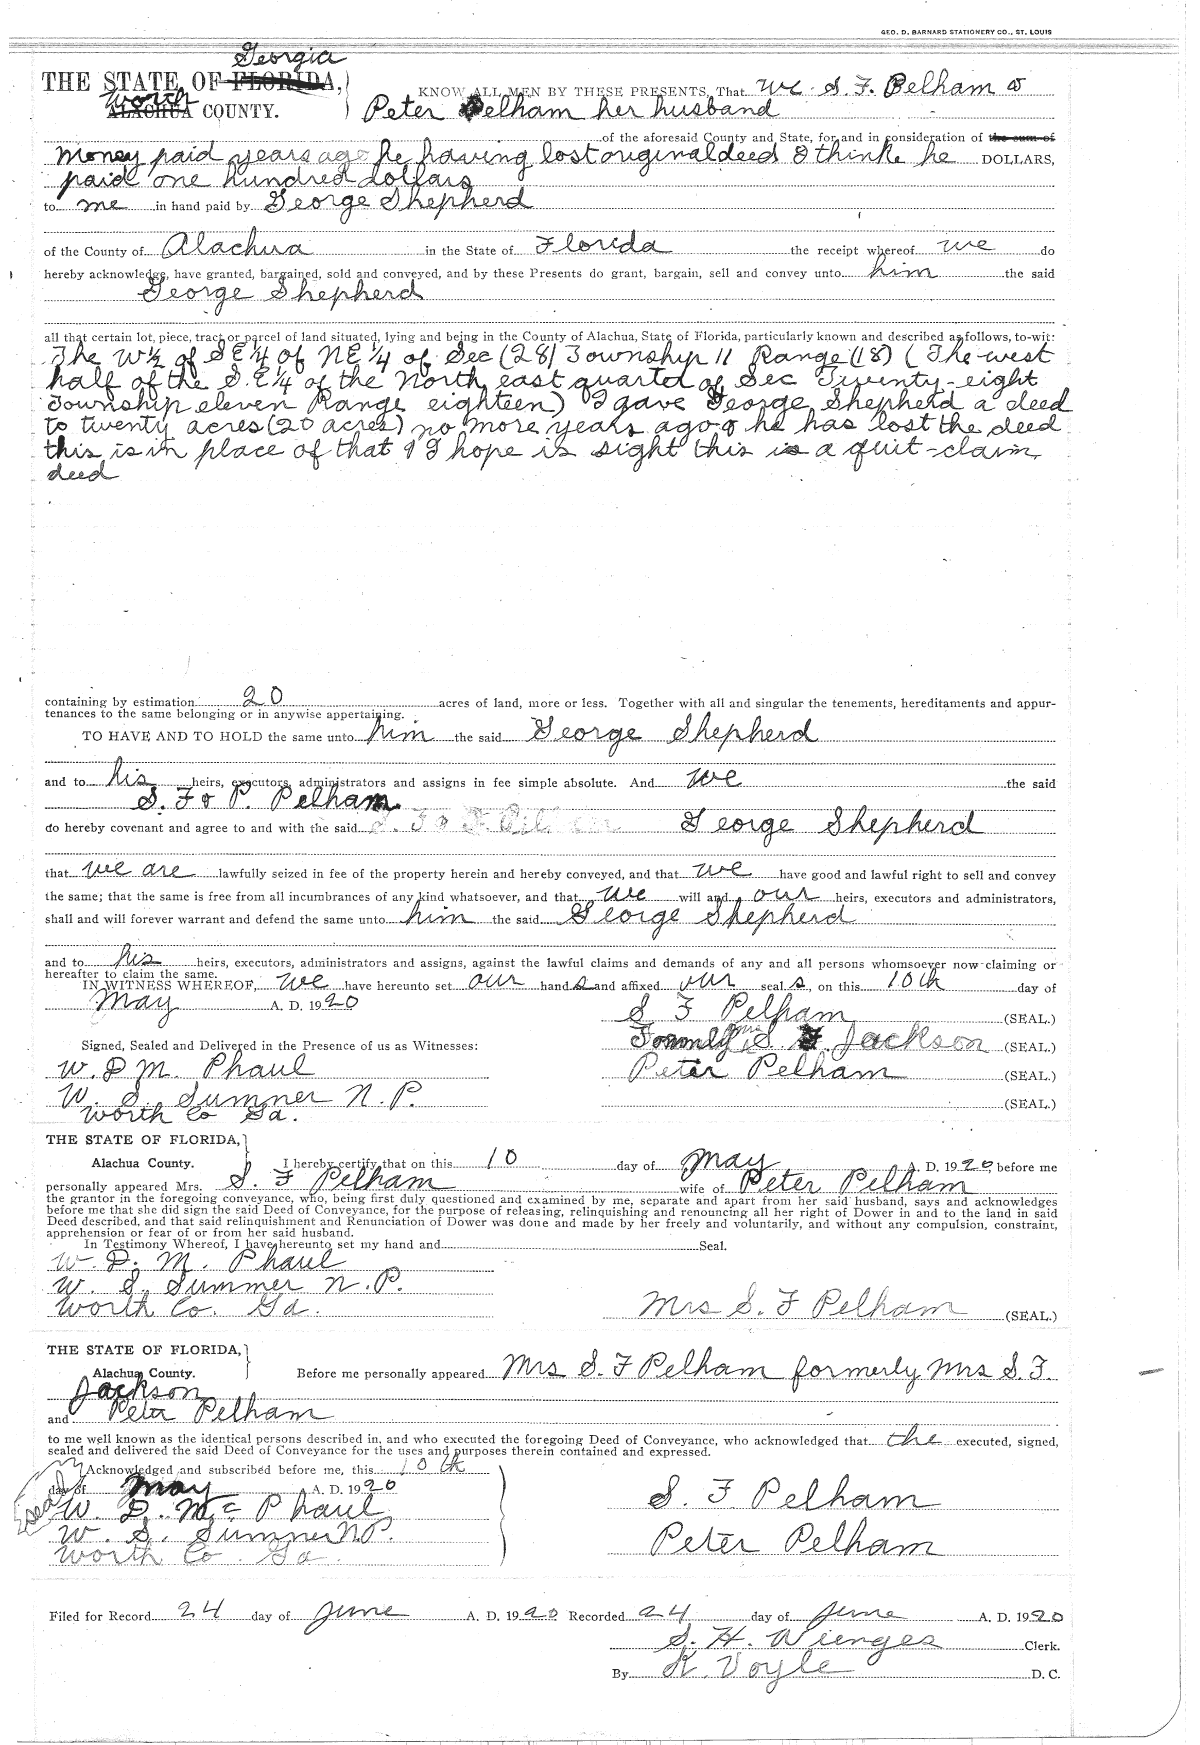 GEO. D. BARNARD STATIONERY CO., ST. LOUIS
Georgia
THE STATE OF FLORIDA,
Worth
ALACHUA COUNTY.
KNOW ALL MEN BY THESE PRESENTS, That We S. F. Pelham &
Peter Pelham her husband
of the aforesaid County and State, for and in consideration of the sum of
Money paid years ago he having lost original deed I think he DOLLARS,
paid one hundred dollars
to me in hand paid by George Shepherd
of the County of Alachua in the State of Florida the receipt whereof we do
hereby acknowledge, have granted, bargained, sold and conveyed, and by these Presents do grant, bargain, sell and convey unto him the said
George Shepherd
all that certain lot, piece, tract or parcel of land situated, lying and being in the County of Alachua, State of Florida, particularly known and described as follows, to-wit:
The W½ of SE¼ of NE¼ of Sec (28) Township 11 Range (18) (The west
half of the S.E¼ of the North east quarted of Sec Twenty-eight
Township eleven Range eighteen) I gave George Shepherd a deed
to twenty acres (20 acres) no more years ago & he has lost the deed
this is in place of that & I hope is sight this is a quit-claim
deed
containing by estimation 20 acres of land, more or less. Together with all and singular the tenements, hereditaments and appur-
tenances to the same belonging or in anywise appertaining.
TO HAVE AND TO HOLD the same unto him the said George Shepherd
and to his heirs, executors, administrators and assigns in fee simple absolute. And we the said
S. F & P. Pelham
do hereby covenant and agree to and with the said George Shepherd
that we are lawfully seized in fee of the property herein and hereby conveyed, and that we have good and lawful right to sell and convey
the same; that the same is free from all incumbrances of any kind whatsoever, and that we will and our heirs, executors and administrators,
shall and will forever warrant and defend the same unto him the said George Shepherd
and to his heirs, executors, administrators and assigns, against the lawful claims and demands of any and all persons whomsoever now claiming or
hereafter to claim the same.
IN WITNESS WHEREOF, we have hereunto set our hand s and affixed our seal s, on this 10th day of
May A. D. 1920
S F Pelham (SEAL.)
Formly Mrs S. F Jackson (SEAL.)
Signed, Sealed and Delivered in the Presence of us as Witnesses:
W. D M. Phaul Peter Pelham (SEAL.)
W. S. Summer N. P. (SEAL.)
Worth Co Ga.
THE STATE OF FLORIDA,
Alachua County. I hereby certify that on this 10 day of May A. D. 1920, before me
personally appeared Mrs. S. F Pelham wife of Peter Pelham
the grantor in the foregoing conveyance, who, being first duly questioned and examined by me, separate and apart from her said husband, says and acknowledges
before me that she did sign the said Deed of Conveyance, for the purpose of releasing, relinquishing and renouncing all her right of Dower in and to the land in said
Deed described, and that said relinquishment and Renunciation of Dower was done and made by her freely and voluntarily, and without any compulsion, constraint,
apprehension or fear of or from her said husband.
In Testimony Whereof, I have hereunto set my hand and Seal.
W. D. M. Phaul
W. S. Summer N. P.
Worth Co. Ga. Mrs S. F Pelham (SEAL.)
THE STATE OF FLORIDA,
Alachua County. Before me personally appeared Mrs S. F Pelham formerly Mrs S. F.
Jackson
and Peter Pelham
to me well known as the identical persons described in, and who executed the foregoing Deed of Conveyance, who acknowledged that the executed, signed,
sealed and delivered the said Deed of Conveyance for the uses and purposes therein contained and expressed.
Acknowledged and subscribed before me, this 10th
day of May A. D. 1920
seal
W. D. Mc Phaul S. F Pelham
W. S. Summer N.P. Peter Pelham
Worth Co. Ga.
Filed for Record 24 day of June A. D. 1920 Recorded 24 day of June A. D. 1920
S. H. Wienges Clerk.
By K. Voyle D. C.